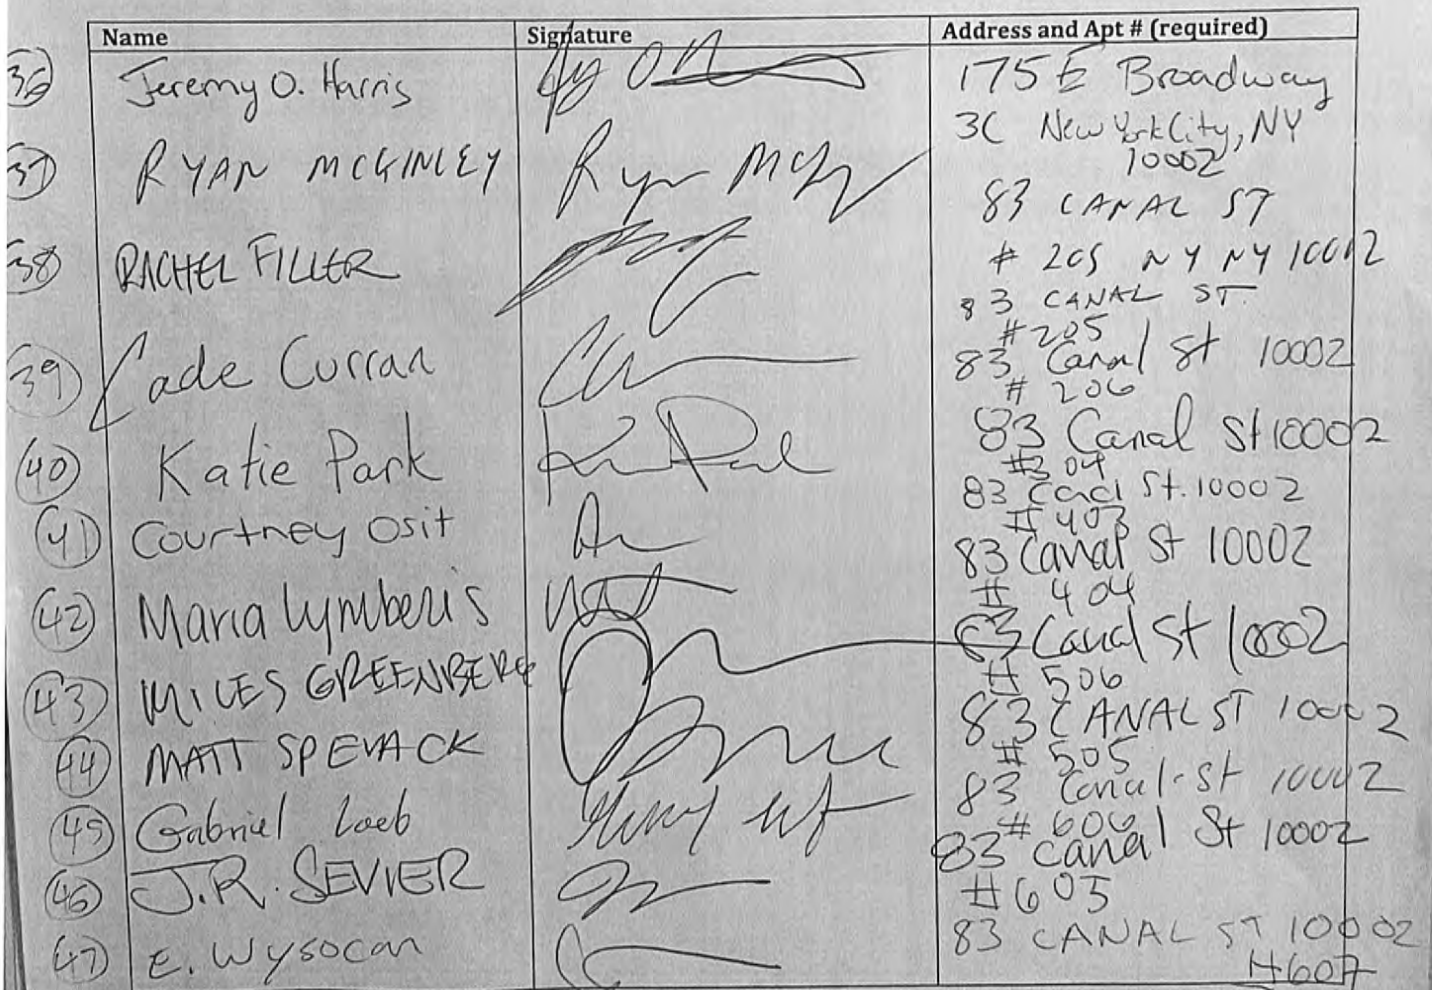 Name Signature Address and Apt # (required)
36 Jeremy O. Harris 175 E Broadway
3C New York City, NY
10002
37 RYAN MCGINLEY Ryan McGy 83 CANAL ST
# 205 NY NY 10012
38 RACHEL FILLER 83 CANAL ST.
#205
39 Cade Curran 83 Canal St 10002
# 206
40 Katie Park 83 Canal St 10002
#304
41 Courtney Osit 83 St. 10002
# 403
42 Maria Lymberis 83 Canal St 10002
# 404
43 MILES GREENBERG 83 Canal St 10002
# 506
44 MATT SPEVACK 83 CANAL ST 10002
# 505
45 Gabriel Loeb 83 Canal St 10002
# 606
46 J.R. SEVIER 83 Canal St 10002
#605
47 E. Wysocan 83 CANAL ST 10002
#607